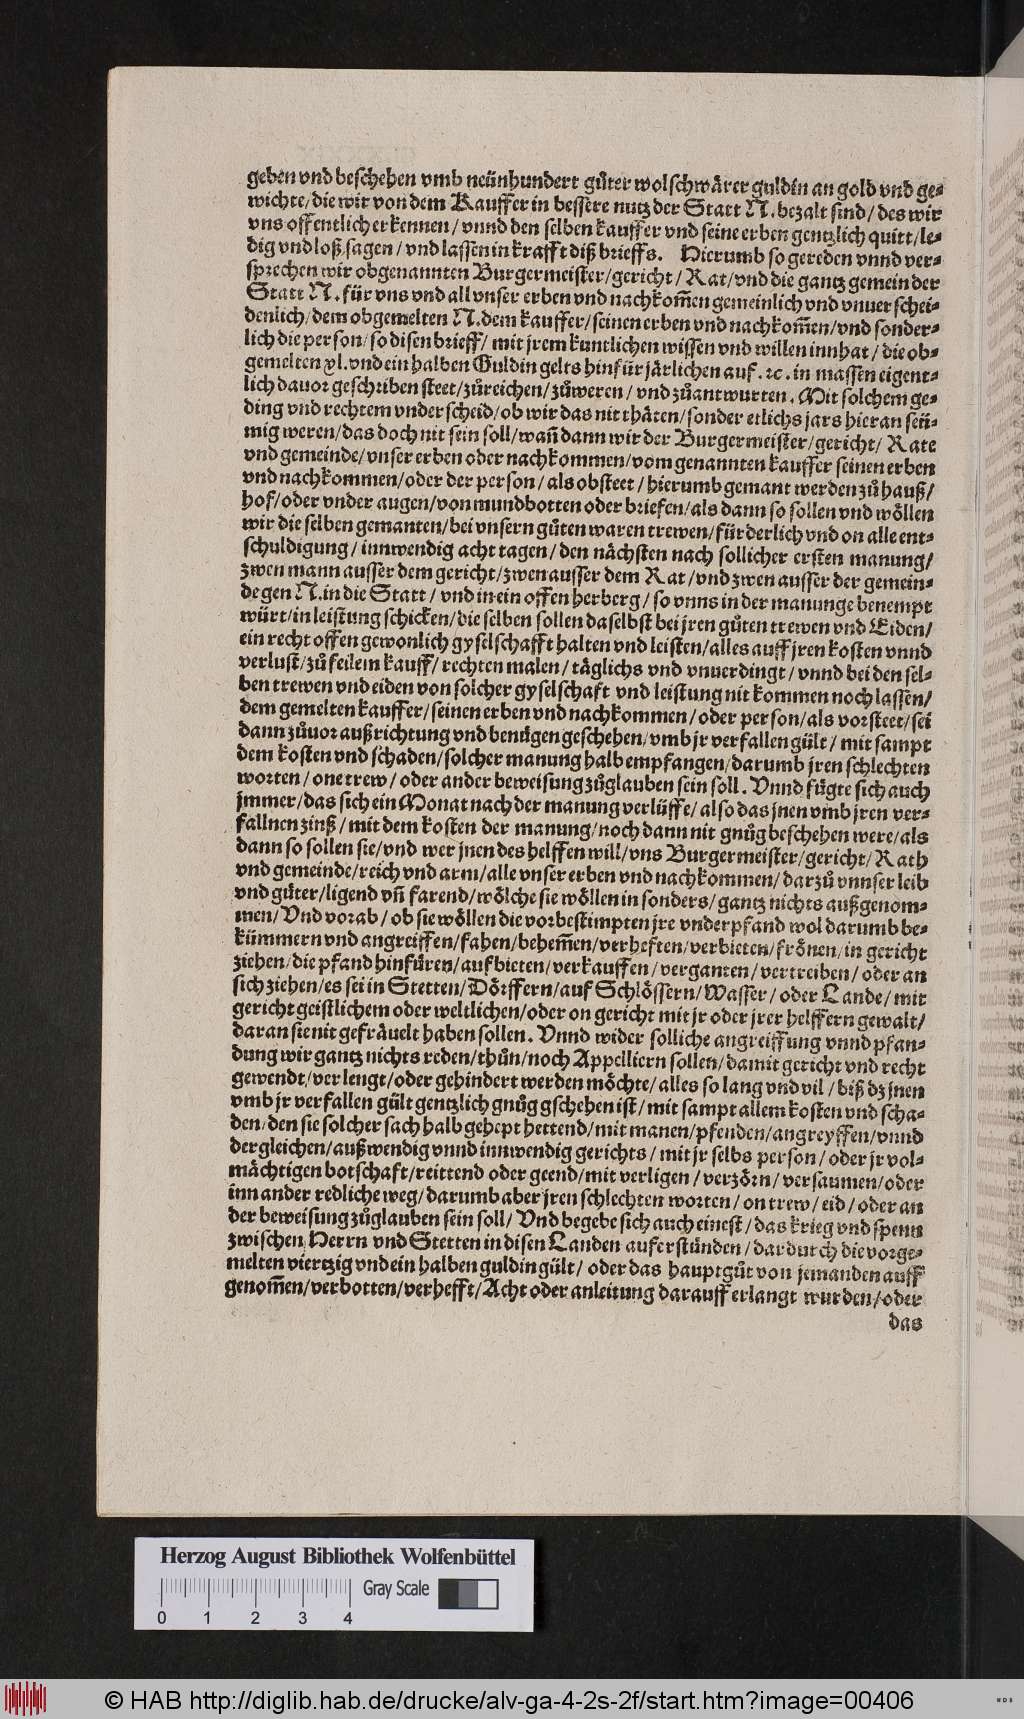 geben vnd beschehen vmb neünhundert gůter wolschwärer guldin an gold vnd ge-
wichte/die wir von dem Kauffer in bessere nutz der Statt N. bezalt sind/des wir
vns offentlich erkennen/vnnd den selben kauffer vnd seine erben gentzlich quitt/le-
dig vnd loß sagen/vnd lassen in krafft diß brieffs. Hierumb so gereden vnnd ver-
sprechen wir obgenannten Burgermeister/gericht/Rat/vnd die gantz gemein der
Statt N. für vns vnd all vnser erben vnd nachkom̃en gemeinlich vnd vnuerschei-
denlich/dem obgemelten N. dem kauffer/seinen erben vnd nachkom̃en/vnd sonder-
lich die person/so disen brieff/mit jrem kuntlichen wissen vnd willen innhat/die ob-
gemelten xl. vnd ein halben Guldin gelts hinfür järlichen auf .rc. in massen eigent-
lich dauor geschriben steet/zůreichen/zůweren/vnd zůantwurten. Mit solchem ge-
ding vnd rechtem vnderscheid/ob wir das nit thäten/sonder etlichs jars hieran seü-
mig weren/das doch nit sein soll/wañ dann wir der Burgermeister/gericht/Rate
vnd gemeinde/vnser erben oder nachkommen/vom genannten kauffer seinen erben
vnd nachkommen/oder der person/als obsteet/hierumb gemant werden zů hauß/
hof/oder vnder augen/von mundbotten oder briefen/als dann so sollen vnd wöllen
wir die selben gemanten/bei vnsern gůten waren trewen/fürderlich vnd on alle ent-
schuldigung/innwendig acht tagen/den nächsten nach sollicher ersten manung/
zwen mann ausser dem gericht/zwen ausser dem Rat/vnd zwen ausser der gemein-
de gen N. in die Statt/vnd in ein offen herberg/so vnns in der manunge benempt
würt/in leistung schicken/die selben sollen daselbst bei jren gůten trewen vnd Eiden/
ein recht offen gewonlich gyselschafft halten vnd leisten/alles auff jren kosten vnnd
verlust/zů feilem kauff/rechten malen/täglichs vnd vnuerdingt/vnnd bei den sel-
ben trewen vnd eiden von solcher gyselschaft vnd leistung nit kommen noch lassen/
dem gemelten kauffer/seinen erben vnd nachkommen/oder person/als vorsteet/sei
dann zůuor außrichtung vnd benügen geschehen/vmb jr verfallen gült/mit sampt
dem kosten vnd schaden/solcher manung halb empfangen/darumb jren schlechten
worten/one trew/oder ander beweisung zůglauben sein soll. Vnnd fügte sich auch
jmmer/das sich ein Monat nach der manung verlüffe/also das jnen vmb jren ver-
fallnen zinß/mit dem kosten der manung/noch dann nit gnůg beschehen were/als
dann so sollen sie/vnd wer jnen des helffen will/vns Burgermeister/gericht/Rath
vnd gemeinde/reich vnd arm/alle vnser erben vnd nachkommen/darzů vnnser leib
vnd güter/ligend vñ farend/wölche sie wöllen in sonders/gantz nichts außgenom-
men/Vnd vorab/ob sie wöllen die vorbestimpten jre vnderpfand wol darumb be-
kümmern vnd angreiffen/fahen/behem̃en/verheften/verbieten/frönen/in gericht
ziehen/die pfand hinfüren/aufbieten/verkauffen/verganten/vertreiben/oder an
sich ziehen/es sei in Stetten/Dörffern/auf Schlössern/Wasser/oder Lande/mit
gericht geistlichem oder weltlichen/oder on gericht mit jr oder jrer helffern gewalt/
daran sie nit gefräuelt haben sollen. Vnnd wider solliche angreiffung vnnd pfan-
dung wir gantz nichts reden/thůn/noch Appelliern sollen/damit gericht vnd recht
gewendt/verlengt/oder gehindert werden möchte/alles so lang vnd vil/biß dz jnen
vmb jr verfallen gült gentzlich gnůg gschehen ist/mit sampt allem kosten vnd scha-
den/den sie solcher sach halb gehept hettend/mit manen/pfenden/angreyffen/vnnd
dergleichen/außwendig vnnd innwendig gerichts/mit jr selbs person/oder jr vol-
mächtigen botschaft/reittend oder geend/mit verligen/verzörn/versaumen/oder
inn ander redliche weg/darumb aber jren schlechten worten/on trew/eid/oder an
der beweisung zůglauben sein soll/Vnd begebe sich auch einest/das krieg vnd spenn
zwischen Herrn vnd Stetten in disen Landen auferstünden/dardurch die vorge-
melten viertzig vnd ein halben guldin gült/oder das hauptgůt von jemanden auff
genom̃en/verbotten/verhefft/Acht oder anleitung darauff erlangt wurden/oder
das
Herzog August Bibliothek Wolfenbüttel
Gray Scale
0 1 2 3 4
© HAB http://diglib.hab.de/drucke/alv-ga-4-2s-2f/start.htm?image=00406